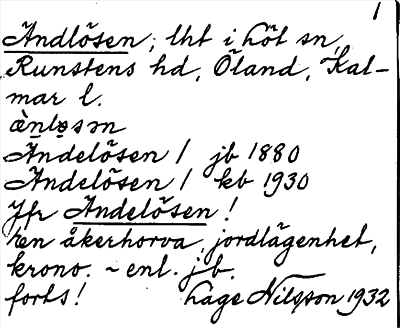 1
Ändlösen, lht i Löt sn,
Runstens hd, Öland, Kal-
mar l.
ǹlsn
Ändelösen / jb 1880
Ändelösen / kb 1930
Jfr Ändelösen!
En åkerhorva, jordlägenhet,
krono. ~ enl. jb.
forts! Lage Nilsson 1932